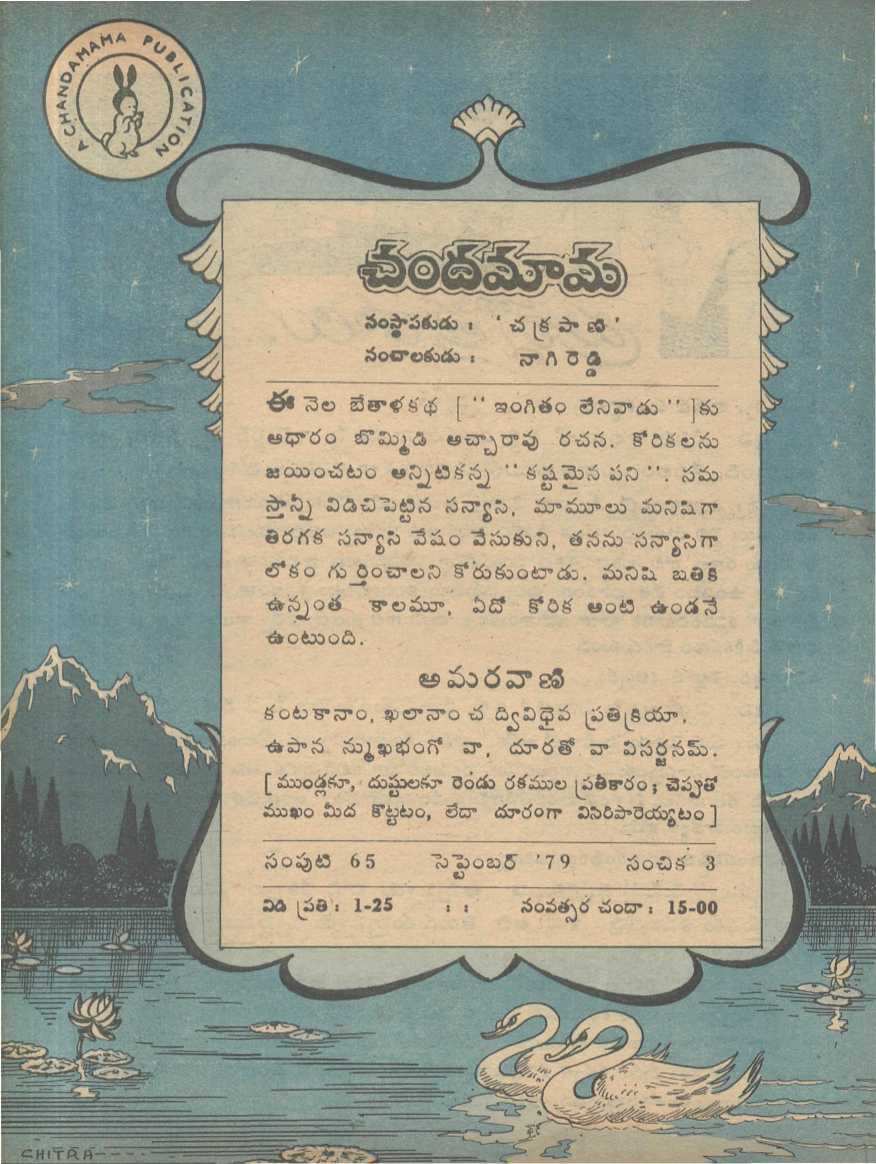 A CHANDAMAMA PUBLICATION
చందమామ
సంస్థాపకుడు : ' చక్రపాణి '
సంచాలకుడు : నాగిరెడ్డి
ఈ నెల బేతాళకథ [ " ఇంగితం లేనివాడు " ]కు
ఆధారం బొమ్మిడి అచ్చారావు రచన. కోరికలను
జయించటం అన్నిటికన్న " కష్టమైన పని ". సమ
స్తాన్నీ విడిచిపెట్టిన సన్యాసి, మామూలు మనిషిగా
తిరగక సన్యాసి వేషం వేసుకుని, తనను సన్యాసిగా
లోకం గుర్తించాలని కోరుకుంటాడు. మనిషి బతికి
ఉన్నంత కాలమూ, ఏదో కోరిక అంటి ఉండనే
ఉంటుంది.
అమరవాణి
కంటకానాం, ఖలానాం చ ద్వివిధైవ ప్రతిక్రియా,
ఉపాన న్ముఖభంగో వా, దూరతో వా విసర్జనమ్.
[ ముండ్లకూ, దుష్టులకూ రెండు రకముల ప్రతీకారం ; చెప్పుతో
ముఖం మీద కొట్టటం, లేదా దూరంగా విసిరిపారెయ్యటం ]
సంపుటి 65 సెప్టెంబర్ '79 సంచిక 3
విడి ప్రతి : 1-25 : : సంవత్సర చందా : 15-00
CHITRA